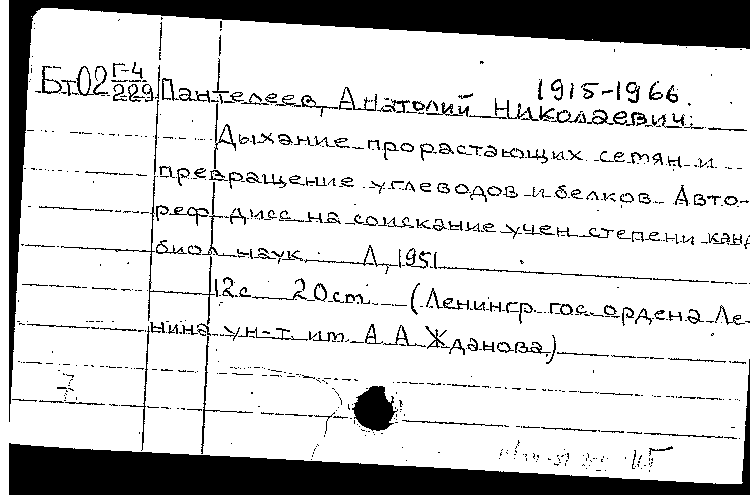 1915-1966.
Бт02 Г-4/229 Пантелеев, Анатолий Николаевич.
Дыхание прорастающих семян и
превращение углеводов и белков. Авто-
реф. дисс на соискание учен степени канд
биол наук. Л, 1951
12с 20cm (Ленингр. гос. ордена Ле-
нина ун-т. им А А Жданова)